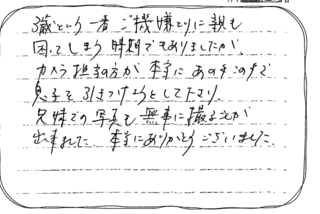 3歳という一番ご機嫌とりに親も
困ってしまう時期でもありましたが、
カメラ担当の方が本当にあの手この手で
息子を引きつけようとして下さり、
兄妹での写真も無事に撮ることが
出来ました。本当にありがとうございました。